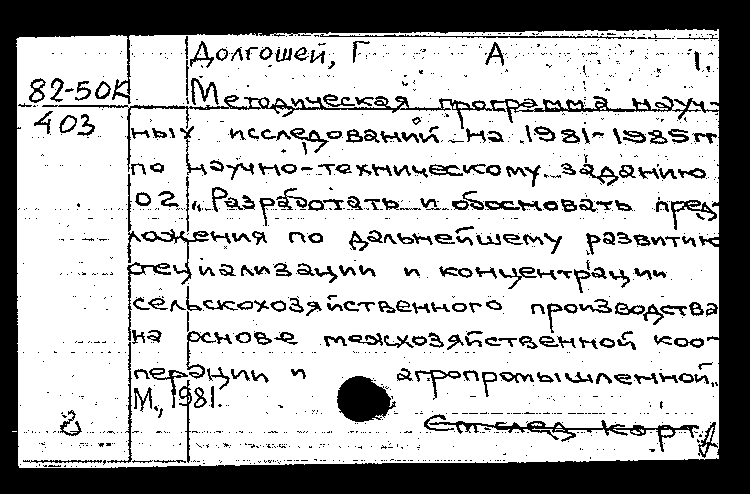 Долгошей, Г А 1.
82-50К Методическая программа науч-
403 ных исследований на 1981-1985 гг
по научно-техническому заданию
02 „Разработать и обосновать пред-
ложения по дальнейшему развитию
специализации и концентрации
сельскохозяйственного производства
на основе межхозяйственной коо-
перации и агропромышленной„
М., 1981.
См след карт